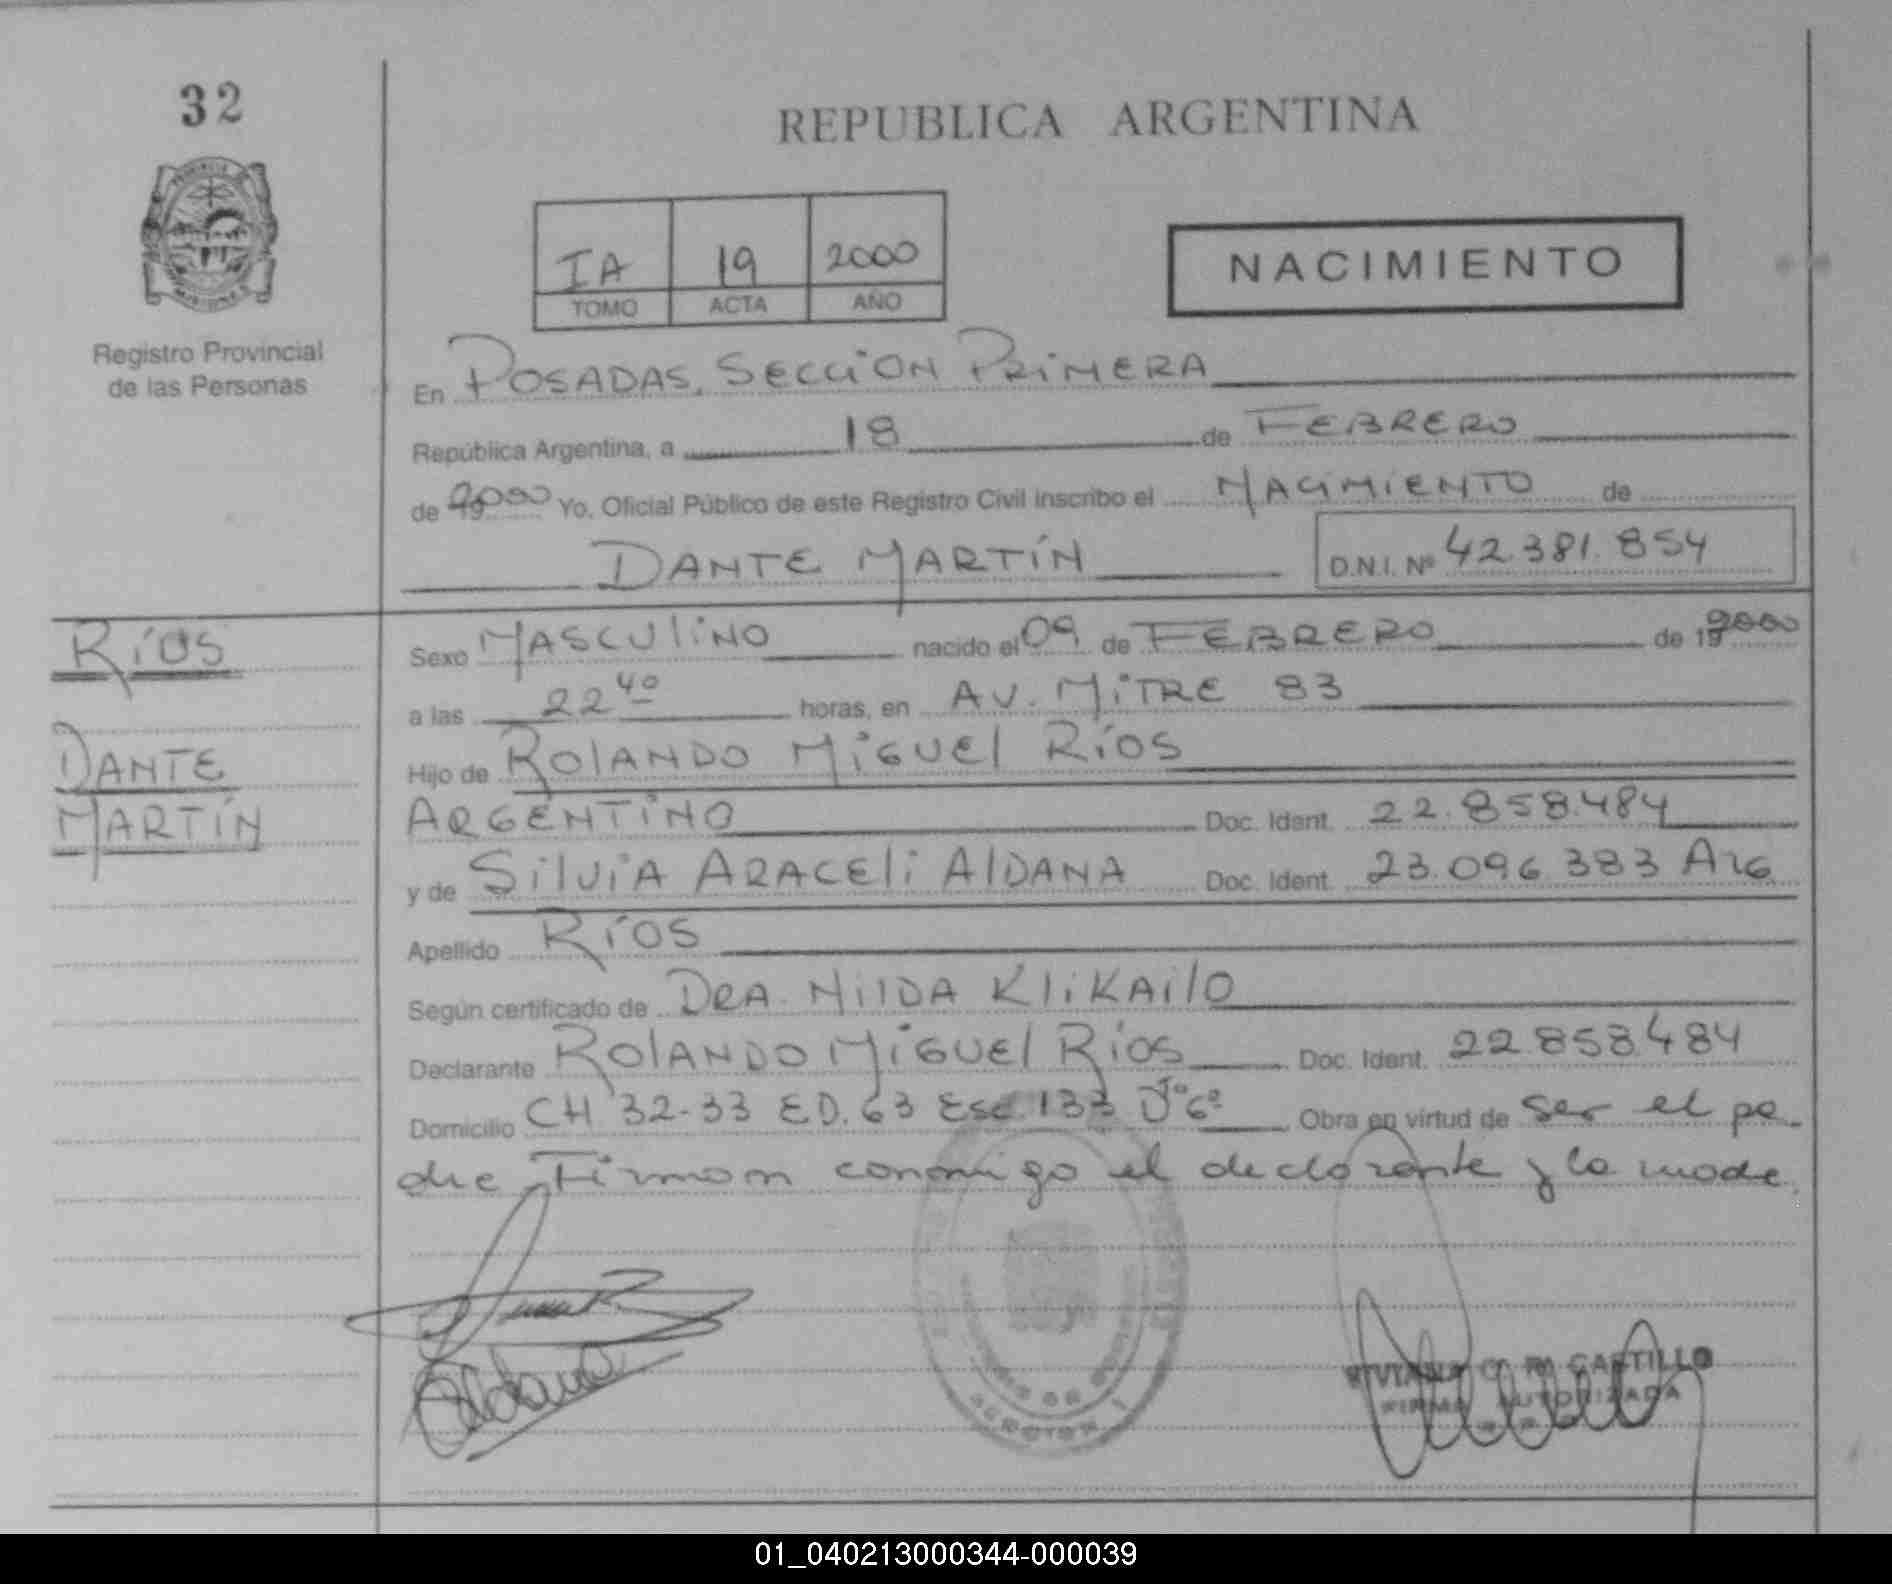 32
REPUBLICA ARGENTINA
IA 19 2000
TOMO ACTA AÑO
NACIMIENTO
Registro Provincial
de las Personas
En POSADAS, SECCIÓN PRIMERA
República Argentina, a 18 de FEBRERO
de 2000 Yo, Oficial Público de este Registro Civil inscribo el NACIMIENTO de
DANTE MARTÍN D.N.I. Nº 42.381.854
RÍOS
DANTE
MARTÍN
Sexo MASCULINO nacido el 09 de FEBRERO de 2000
a las 22 40 horas, en AV. MITRE 83
Hijo de ROLANDO MIGUEL RÍOS
ARGENTINO Doc. Ident. 22.858.484
y de SILVIA ARACELI ALDANA Doc. Ident. 23.096.383 ARG
Apellido RÍOS
Según certificado de DRA. NILDA KLIKAILO
Declarante ROLANDO MIGUEL RÍOS Doc. Ident. 22.858.484
Domicilio CH 32-33 ED. 63 Esc. 133 Obra en virtud de ser el pa-
dre Firman conmigo el declarante y la madre.
Aldana
CASTILLO
FIRMA AUTORIZADA
01_040213000344-000039